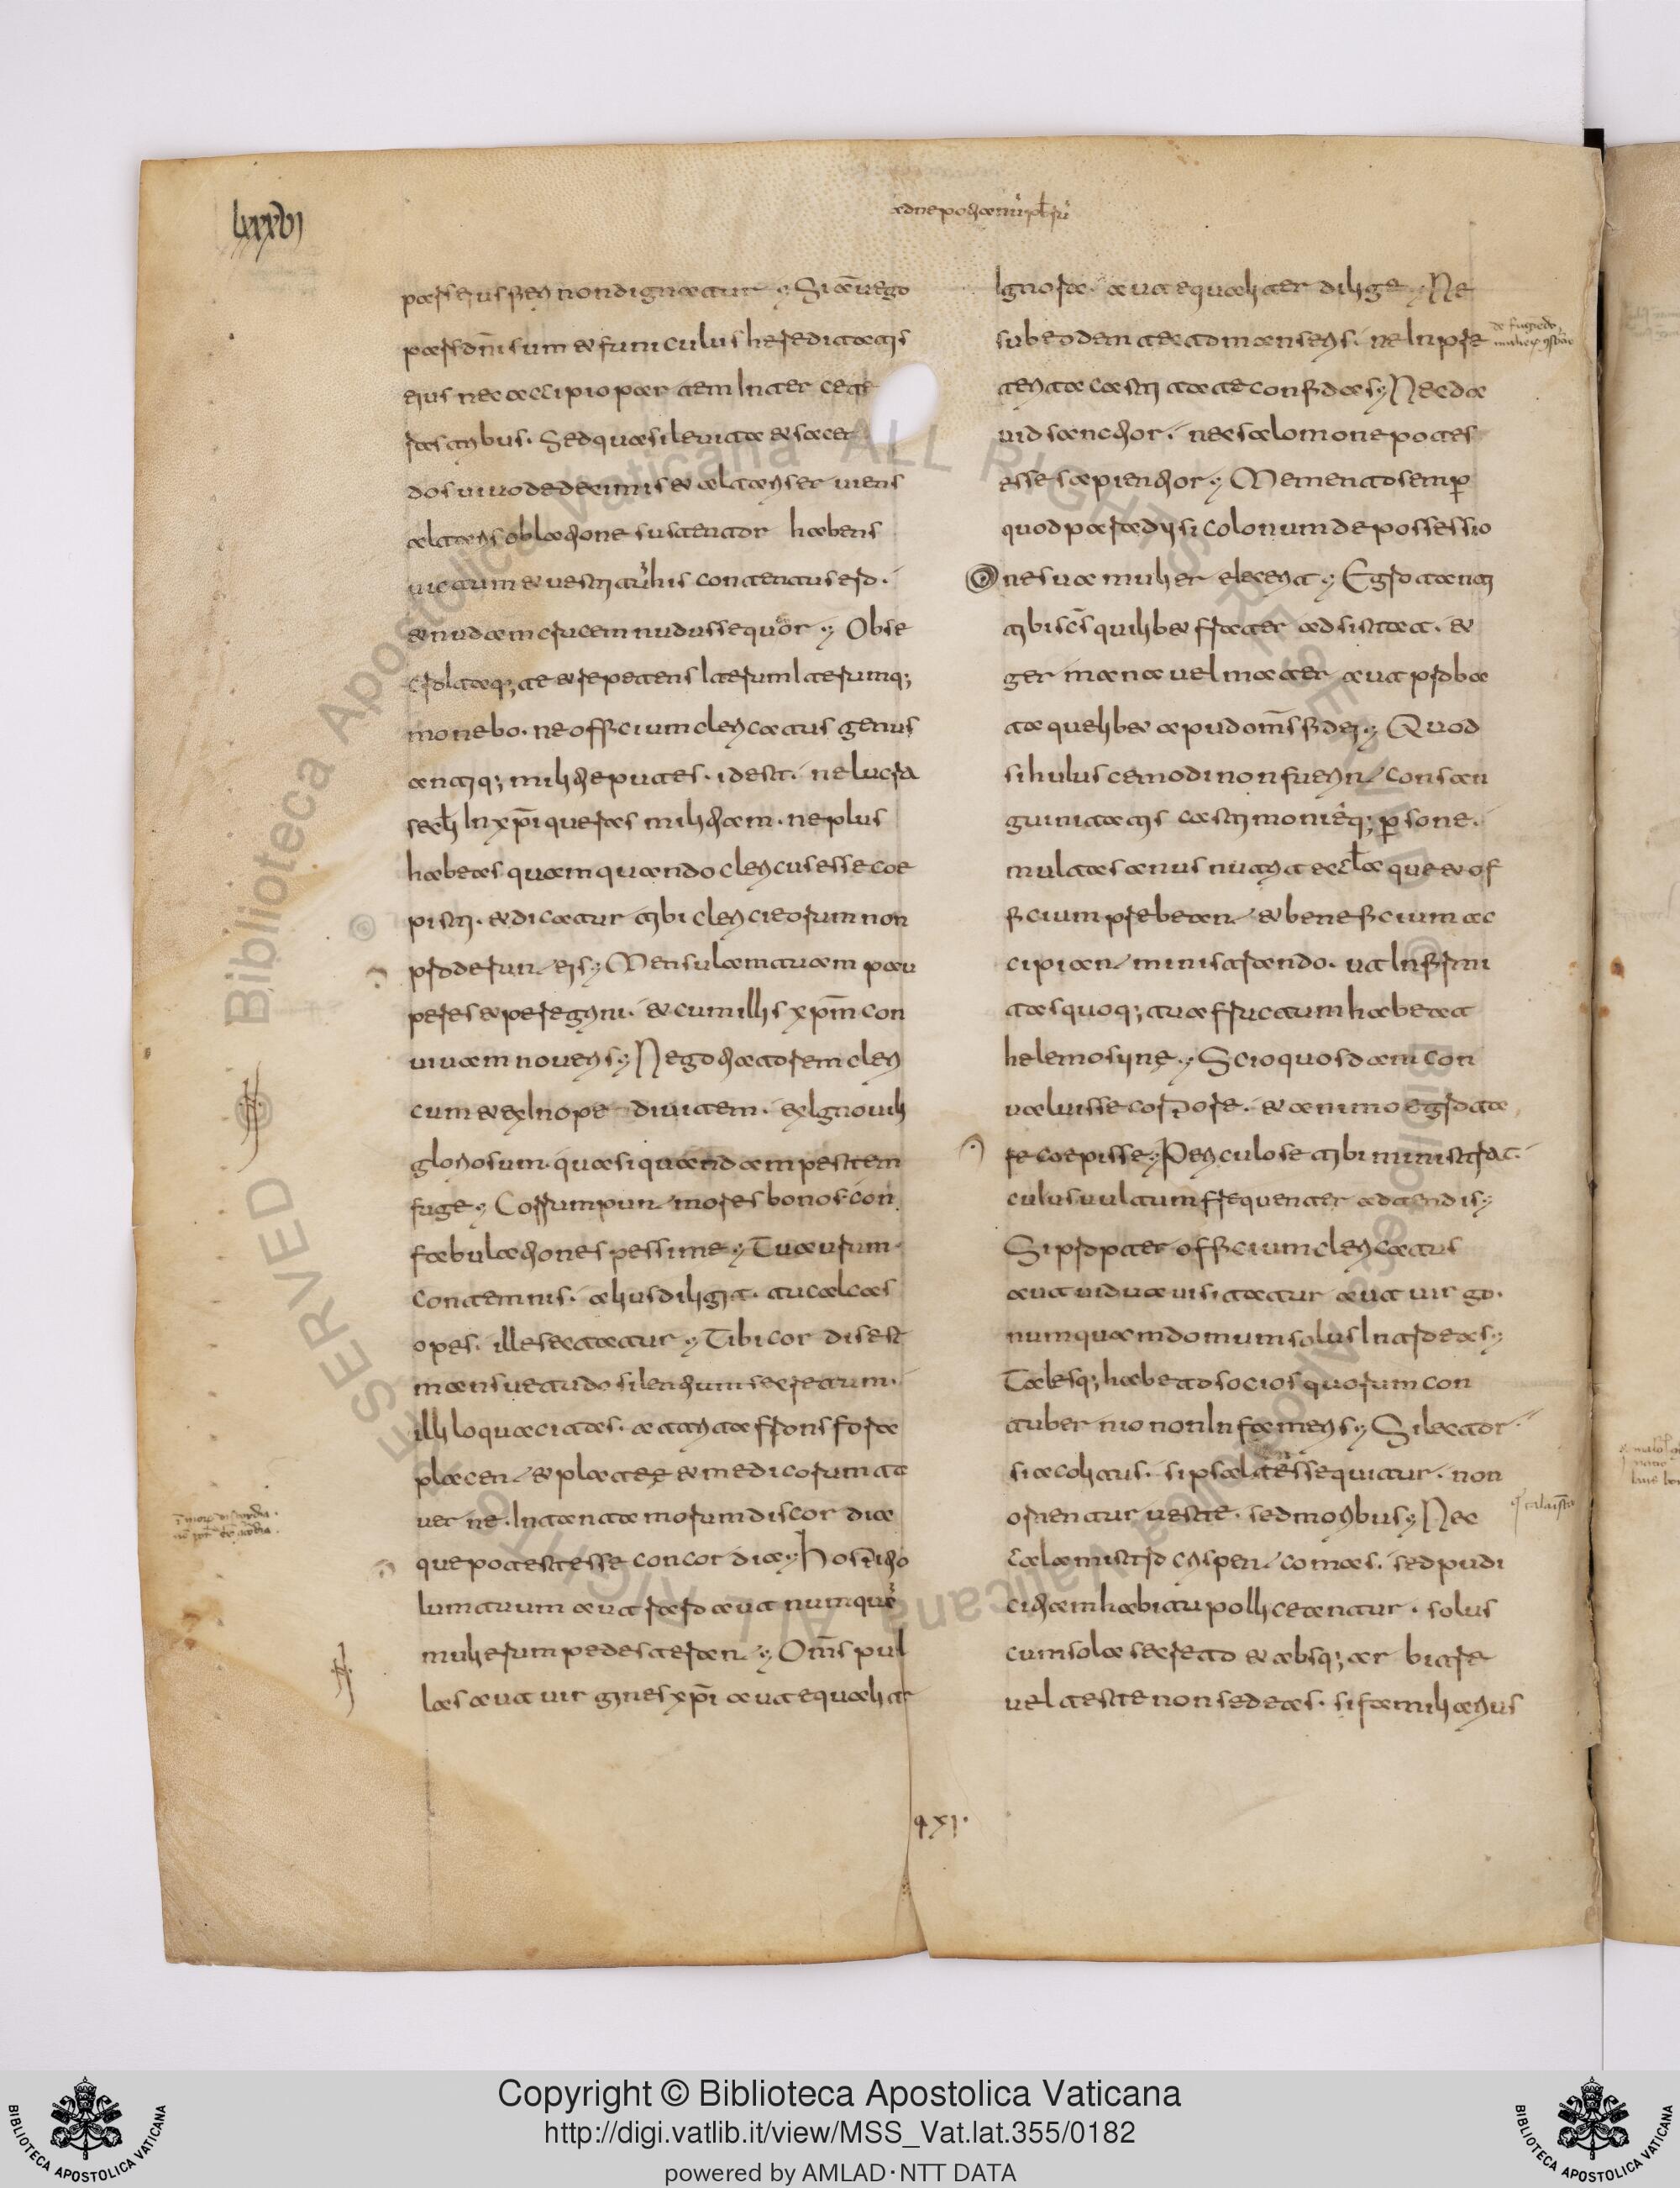 lxxxvi
ad nepotianū p̄brū
pars eius fieri non dignatur ; Si aūt ego
pars dn̄i sum & funiculus hereditatis
eius nec accipio partem inter cete
ras tribus . Sed quasi levita & sacer
dos vivo de decimis & altari serviens
altaris oblatione sustentor habens
victum & vestitū his contentus ero .
& nudam crucem nudus sequor ; Obse
cro itaq; te & repetens iterum iterumq;
monebo . ne officium clericatus genus
antiq; militie putes . id est . ne lucra
sec̄li in xp̄i queras militiam . ne plus
habeas quam quando clericus esse coe
pisti . & dicatur tibi cleri eorum non
proderunt eis ; Mensulam tuam pau
peres & peregrini . & cum illis xp̄m con
vivam noveris ; Negotiatorem cleri
cum & ex inope divitem . ex ignovili
gloriosum . quasi quandam pestem
fuge ; Corrumpunt mores bonos con
fabulationes pessime ; Tu aurum
contemnis . alius diligit . tu calcas
opes . ille sectatur ; Tibi cordi est
mansuetudo silentium secretum .
illi loquacitas . attrita frons fora
placent & platee & medicorum ta
verne . In tanta morum discordia
que potest esse concordia ; Hospitio
lum tuum aut raro aut numquā
mulierum pedes terant ; Om̄s puel
las aut virgines xp̄i aut equaliter
ignora . aut equaliter dilige ; Ne
sub eodem tecto manseris . ne in pre
terita castitate confidas ; Nec da
vid sanctior . nec salomone potes
esse sapientior ; Memento semp̄
quod paradysi colonum de possessio
ne sua mulier eiecerit ; Egrotanti
tibi sc̄s quilibet frater adsistat . &
germana vel mater aut proba
te quelibet apud om̄s fidei ; Quod
si huiuscemodi non fuerint consan
guinitatis castimonieq; p̄sone .
multas anus nutrit ec̄clā que & of
ficium prebeant & beneficium ac
cipiant ministrando . ut infirmi
tas quoq; tua fructum habeat
helemosyne ; Scio quosdam con
valuisse corpore . & animo egrota
re coepisse ; Periculose tibi ministrat
cuius vultum frequenter adtendis ;
Si propter officium clericatus
aut vidua visitatur aut virgo .
numquam domum solus introeas ;
Talesq; habeto socios quorum con
tubernio non infameris ; Si lector
si acolitus . si psaltes sequitur . non
ornentur veste . sed moribus ; Nec
calamistro crispent comas . sed pudi
citiam habitu polliceantur . solus
cum sola secreto & absq; arbitre
vel teste non sedeas . si familiarius
q xi .
Copyright © Biblioteca Apostolica Vaticana
http://digi.vatlib.it/view/MSS_Vat.lat.355/0182
powered by AMLAD·NTT DATA
BIBLIOTECA APOSTOLICA VATICANA
BIBLIOTECA APOSTOLICA VATICANA